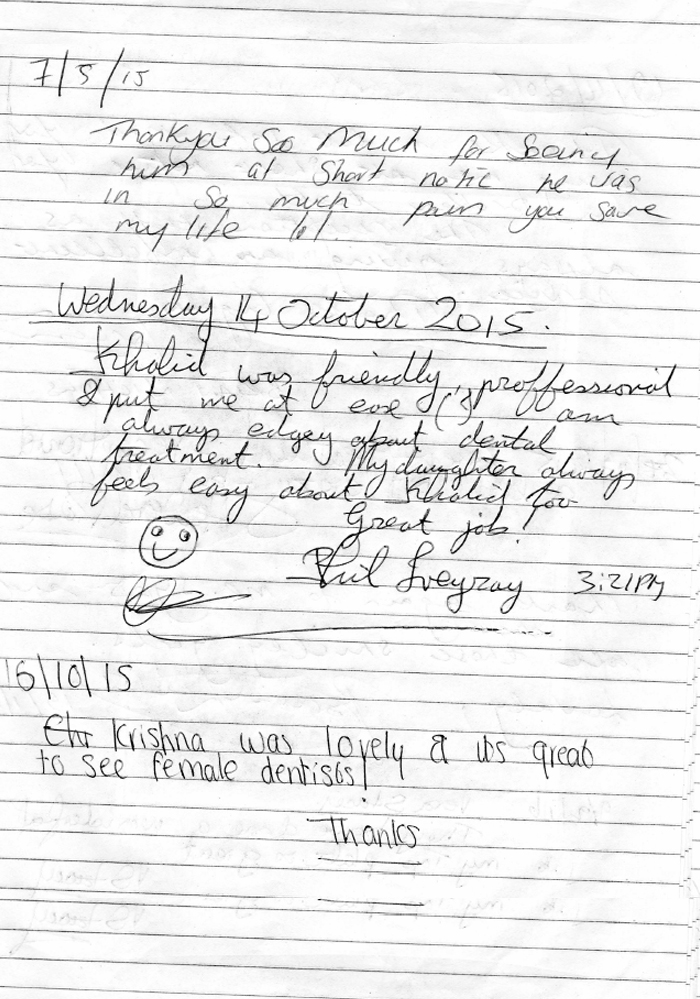 7/5/15
Thankyou Soo Much for Seeing
him at Short notic he was
in So much pain you Save
my life lol
Wednesday 14 October 2015.
Khalid was friendly, proffessional
& put me at ease (I am
always edgey about dental
treatment. My daughter always
feels easy about Khalid too
Great job!
Phil 3:21PM
16/10/15
Krishna was lovely & its great
to see female dentists!
Thanks